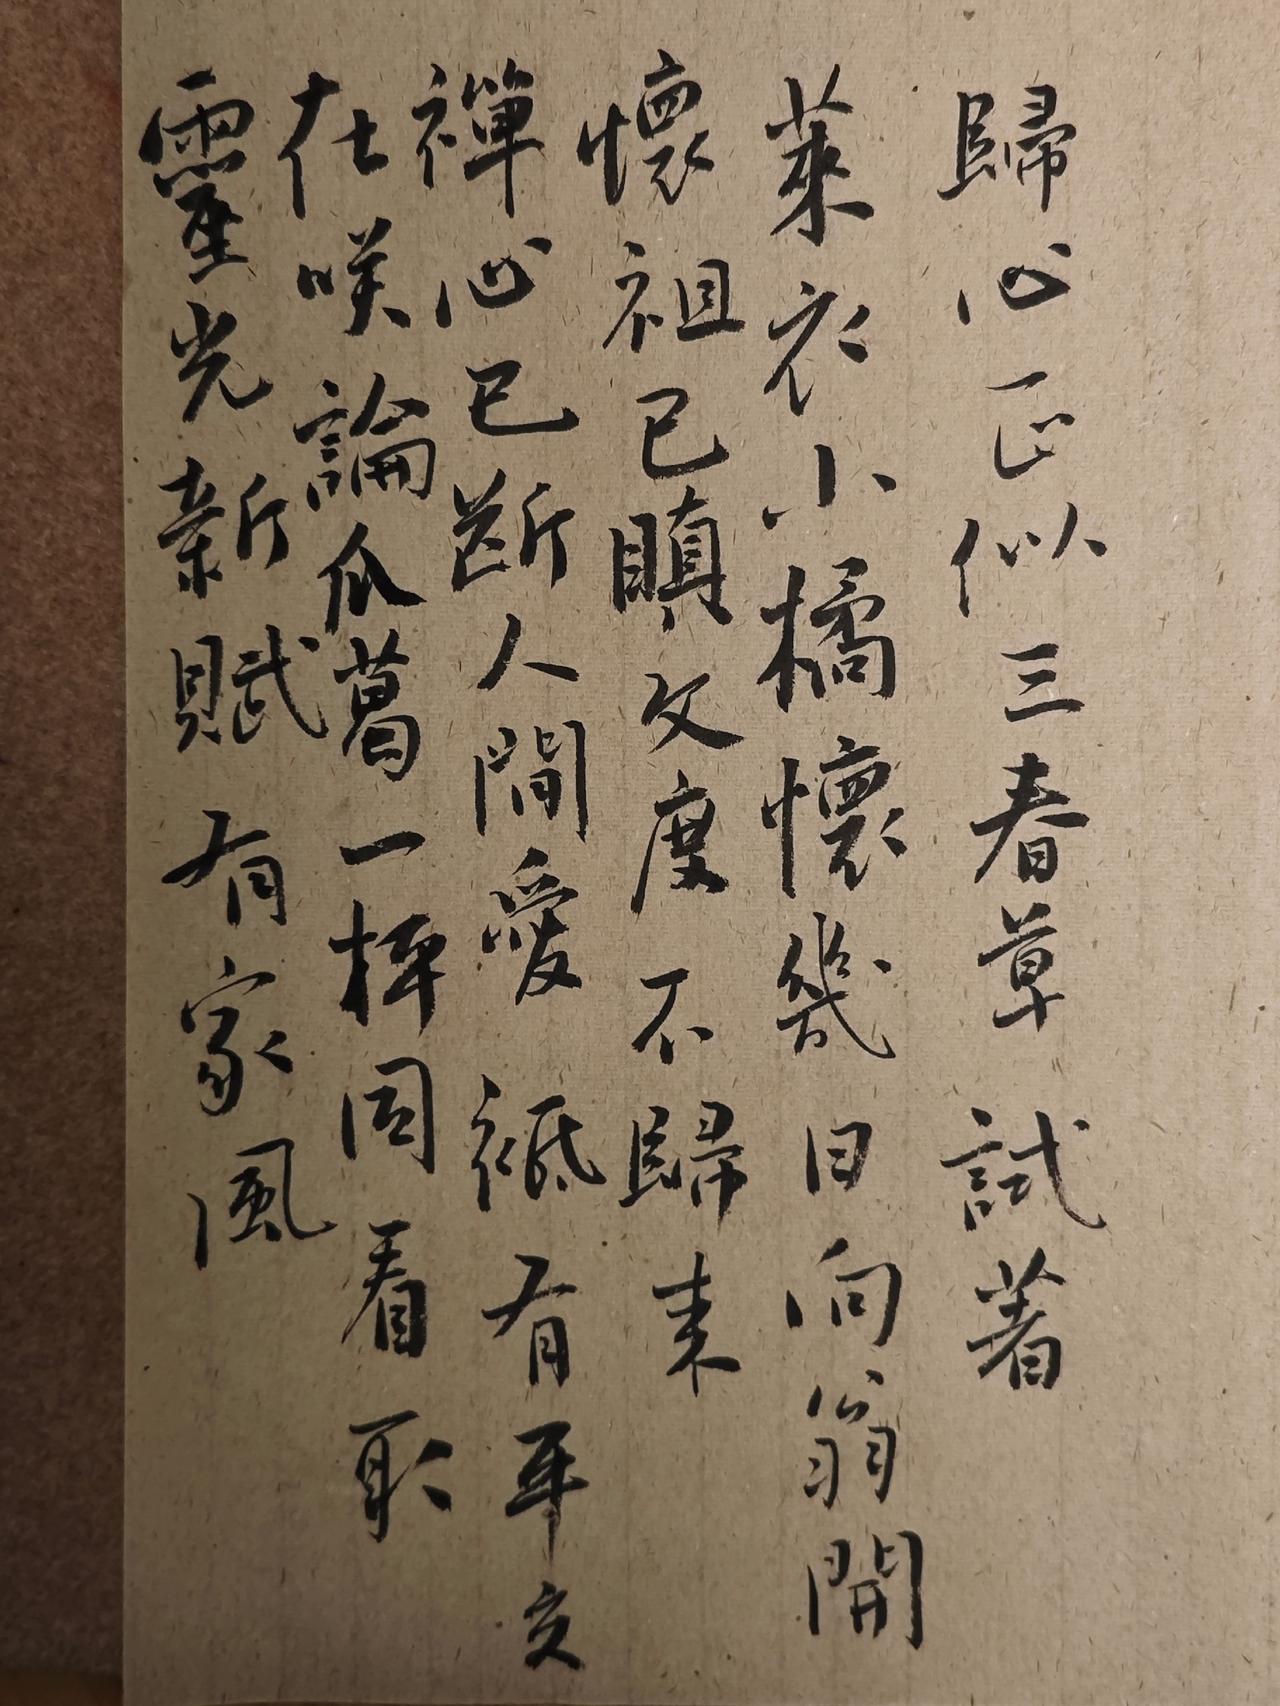 歸心正似三春草 試著
萊衣小橘懷幾日向翁開
懷祖已瞋文度不歸來
禪心已斷人間愛 祗有平交
在笑論瓜葛一枰同看取
靈光新賦有家風